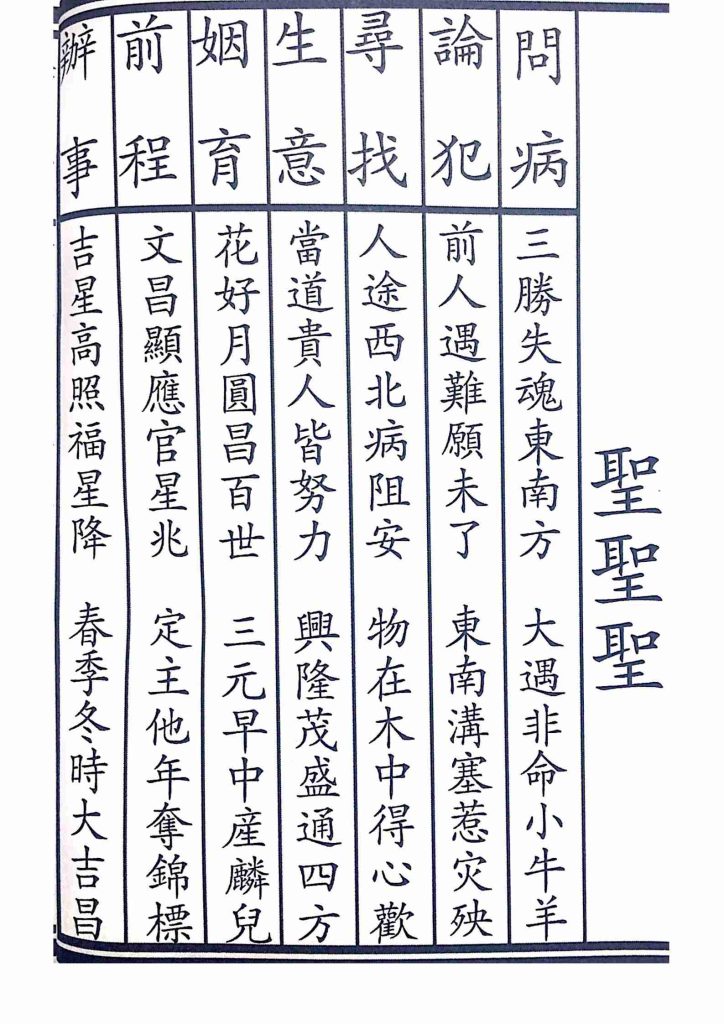 聖聖聖
問病 三勝失魂東南方 大遇非命小牛羊
論犯 前人遇難願未了 東南溝塞惹灾殃
尋找 人途西北病阻安 物在木中得心歡
生意 當道貴人皆努力 興隆茂盛通四方
姻育 花好月圓昌百世 三元早中産麟兒
前程 文昌顯應官星兆 定主他年奪錦標
辦事 吉星高照福星降 春季冬時大吉昌